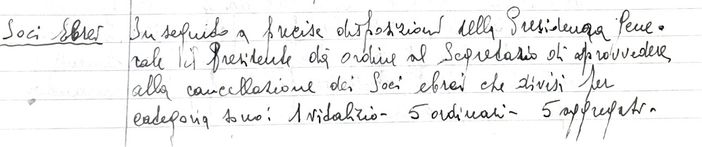 Soci Ebrei In seguito a precise disposizioni della Presidenza Gene-
rale il Presidente dà ordine al Segretario di provvedere
alla cancellazione dei Soci ebrei che divisi per
categoria sono: 1 vidalizio - 5 ordinari - 5 aggregati.